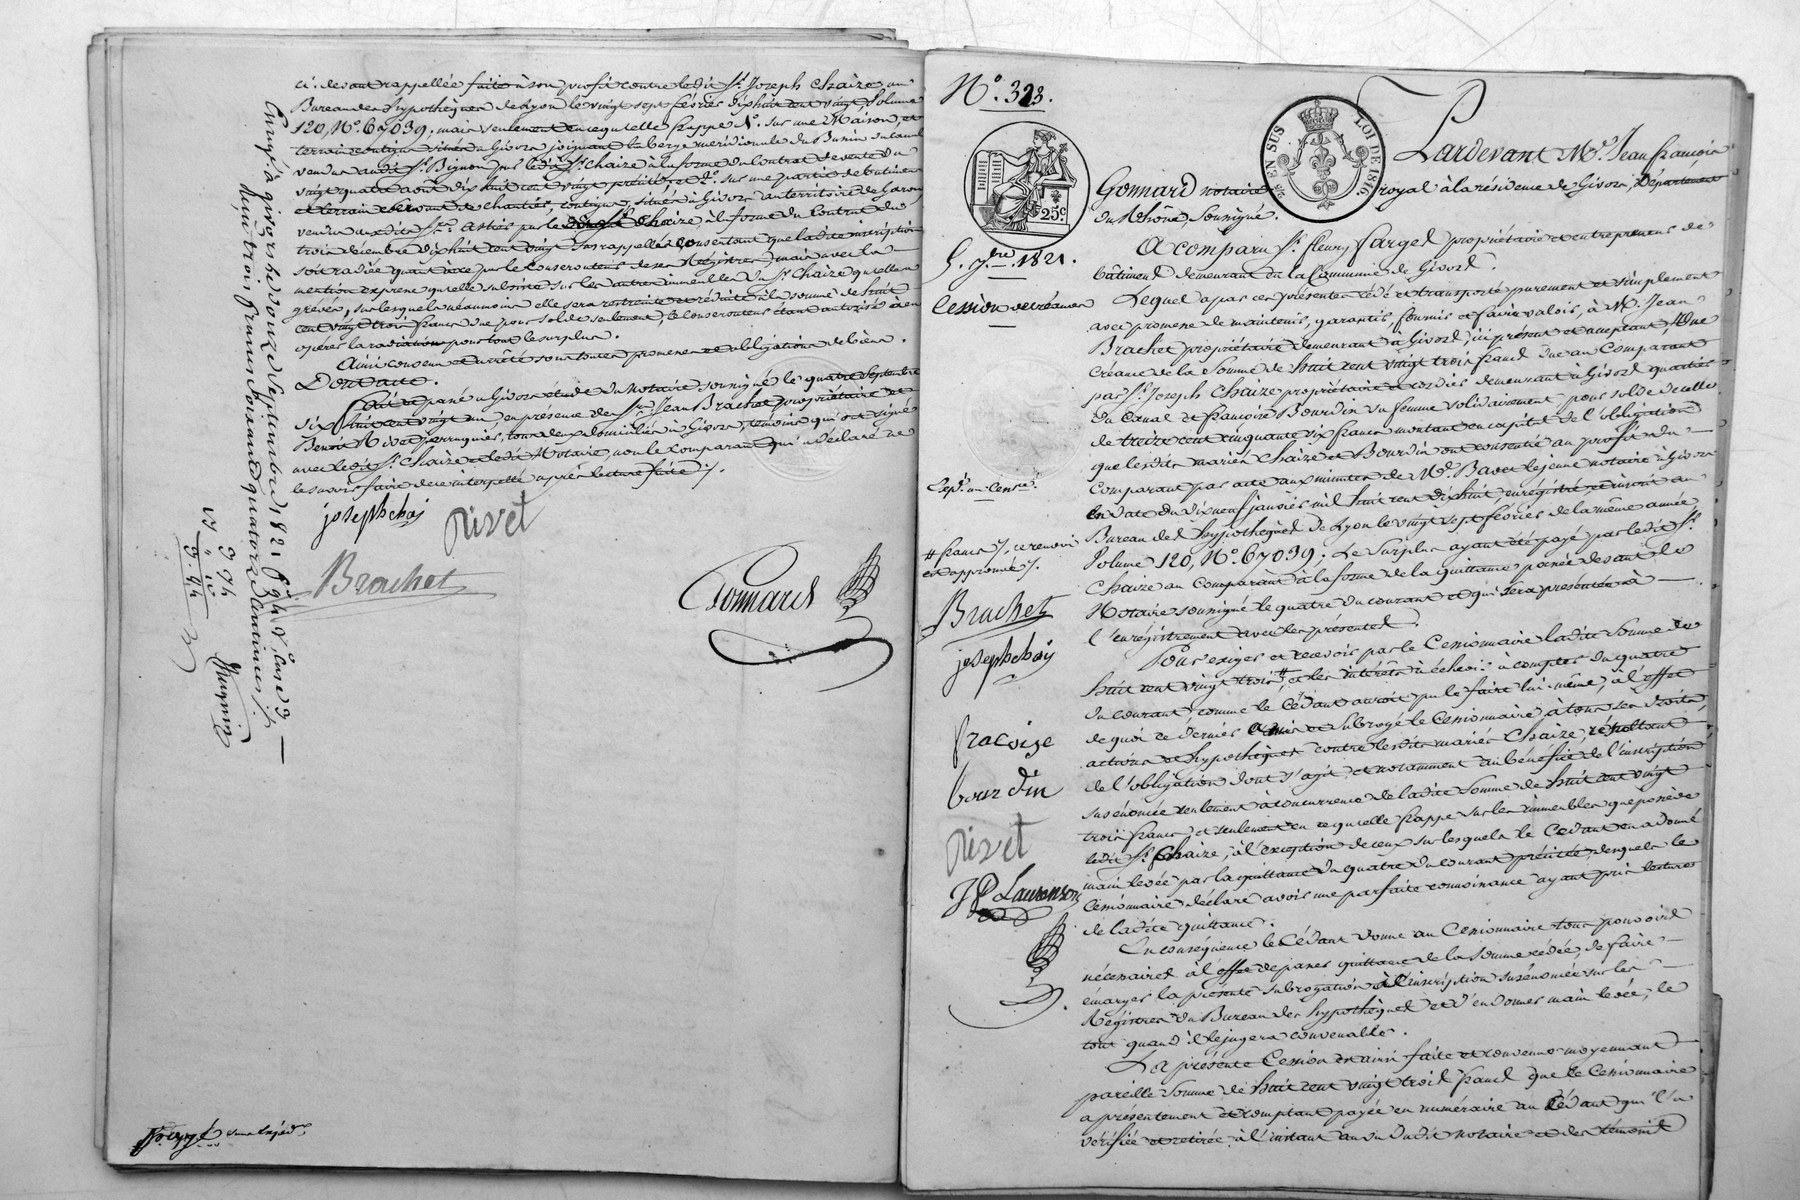 ci-devant rappellée faite à son profit contre ledit Sr. Joseph Chaize, au
Bureau des hypothèques de Lyon le vingt sept février dix huit cent vingt, volume
120, No. 67039, mais seulement en ce qu'elle frappe 1o. sur une Maison, et
terrein contigu situés à Givors joignant la berge méridionale du Bassin du canal
vendus audit Sr. Bignon par ledit Sr. Chaize à la forme du contrat de vente du
vingt quatre août dix huit cent vingt précité, et 2o. sur une partie de batimens
et terrein servant de chantier, contigus, situés à Givors au territoire de
vendus auxdits Srs. par ledit Sr. Chaize, à la forme du Contrat du
trois décembre dix huit cent vingt susrappellé, consentant que ladite inscription
soit radiée quant à ce par le Conservateur de ses Registres, mais avec la
mention expresse qu'elle subsiste sur les autres immeubles du Sr. Chaize qu'elle a
grévés, sur lesquels néanmoins elle sera restreinte et réduite à la somme de huit
cent vingt trois francs due pour solde seulement, le conservateur étant autorisé à en
opérer la radiation pour tout le surplus.
Ainsi convenu et arrêté sous toutes promesses et obligations de biens.
Dont acte.
Fait et passé à Givors étude du Notaire soussigné le quatre Septembre
dix huit cent vingt un, en présence de Srs. Jean Brachet propriétaire et
Benoit Rivet perruquier, tous deux domiciliés à Givors, témoins qui ont signé
avec ledit Sr. Chaize et ledit Notaire, non le Comparant qui a déclaré ne
le savoir faire de ce interpellé après lecture faite ./.
joseph chaiz
Rivet
Brachet
Gonnard
Enregé à givors le douze Septembre 1821 fo. 94 Vo. Case 9
deux francs soixante quatorze centimes ./.
No. 323.
25c.
EN SUS
LOI DE 1816
5. 7bre. 1821.
Cession de créance
Pardevant Me. Jean françois
Gonnard notaire royal à la résidence de Givors, Département
du Rhône, soussigné.
A comparu Sr. fleury farget propriétaire et entrepreneur de
bâtiments demeurant en la Commune de Givors.
Lequel a par ces présentes cédé et transporté purement et simplement
avec promesse de maintenir, garantir, fournir et faire valoir, à Mr. Jean
Brachet propriétaire demeurant à Givors, ici présent et acceptant, Une
Créance de la Somme de huit cent vingt trois francs due au Comparant
par Sr. Joseph Chaize propriétaire et cordier demeurant à Givors quartier
du Canal et françoise Bourdin sa femme solidairement pour solde de celle
de treize cent cinquante six francs montant en capital de l'obligation
que lesdits mariés Chaize et Bourdin ont consentie au profit du
Comparant par acte aux minutes de Me. lejeune notaire à Givors
en date du dix neuf janvier mil huit cent dix huit, enregistré, et inscrit au
Bureau des hypothèques de Lyon le vingt sept février de la même année,
Volume 120, No. 67039. Le Surplus ayant été payé par ledit Sr.
Chaize au Comparant à la forme de la quittance passée devant le
Notaire soussigné le quatre du courant et qui sera présentée à
l'enregistrement avec les présentes.
Pour exiger et recevoir par le Cessionnaire ladite Somme de
huit cent vingt trois #, et les intérêts à échoir à compter du quatre
du courant, comme le Cédant auroit pu le faire lui-même, à l'effet
de quoi ce dernier a mis et subrogé le Cessionnaire à tous ses droits,
actions et hypothèques contre lesdits mariés Chaize, résultant
de l'obligation dont s'agit, et notamment au bénéfice de l'inscription
susénoncée seulement à concurrence de ladite Somme de huit cent vingt
trois francs, et seulement en ce qu'elle frappe sur les immeubles que possède
ledit Sr. Chaize, à l'exception de ceux sur lesquels le Cédant en a donné
main levée par la quittance du quatre du courant précitée, desquels le
Cessionnaire déclare avoir une parfaite connoissance ayant pris lecture
de ladite quittance.
En conséquence le Cédant donne au Cessionnaire tous pouvoirs
nécessaires à l'effet de passer quittance de la Somme cédée, de faire
émarger la présente subrogation à l'inscription susénoncée sur les
Régistres du Bureau des hypothèques et d'en donner main levée, le
tout quand il le jugera convenable.
La présente Cession est ainsi faite et convenue moyennant
pareille Somme de huit cent vingt trois francs que le Cessionnaire
a présentement et comptant payée en numéraire au Cédant qui l'a
vérifiée et retirée à l'instant au vu dudit notaire et des témoins
# francs ./. ce renvoi
est approuvé ./.
Brachet
joseph chaiz
fracoise
bourdin
Rivet
JP Laurenson